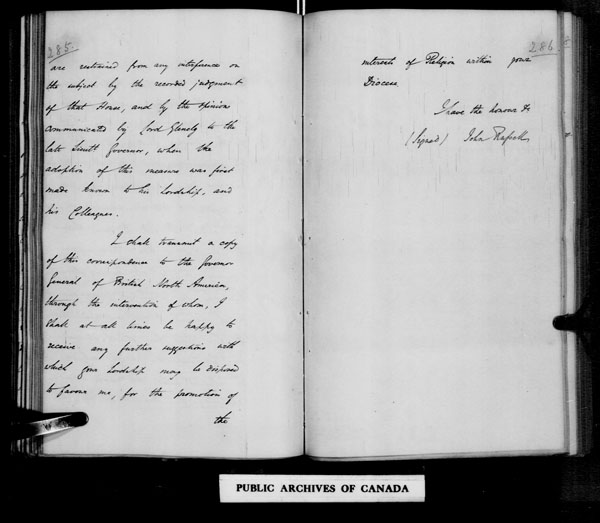 285.
are restrained from any interference on
the subject by the recorded judgment
of that House, and by the opinion
communicated by Lord Glenelg to the
late Lieutt Governor, when the
adoption of this measure was first
made known to his Lordship, and
his Colleagues.
I shall transmit a copy
of this correspondence to the Governor
General of British North America,
through the intervention of whom, I
shall at all times be happy to
receive any further suggestions with
which your Lordship may be disposed
to favour me, for the promotion of
the
286
interests of Religion within your
Diocese
I have the honour &c
(Signed) John Russell
PUBLIC ARCHIVES OF CANADA